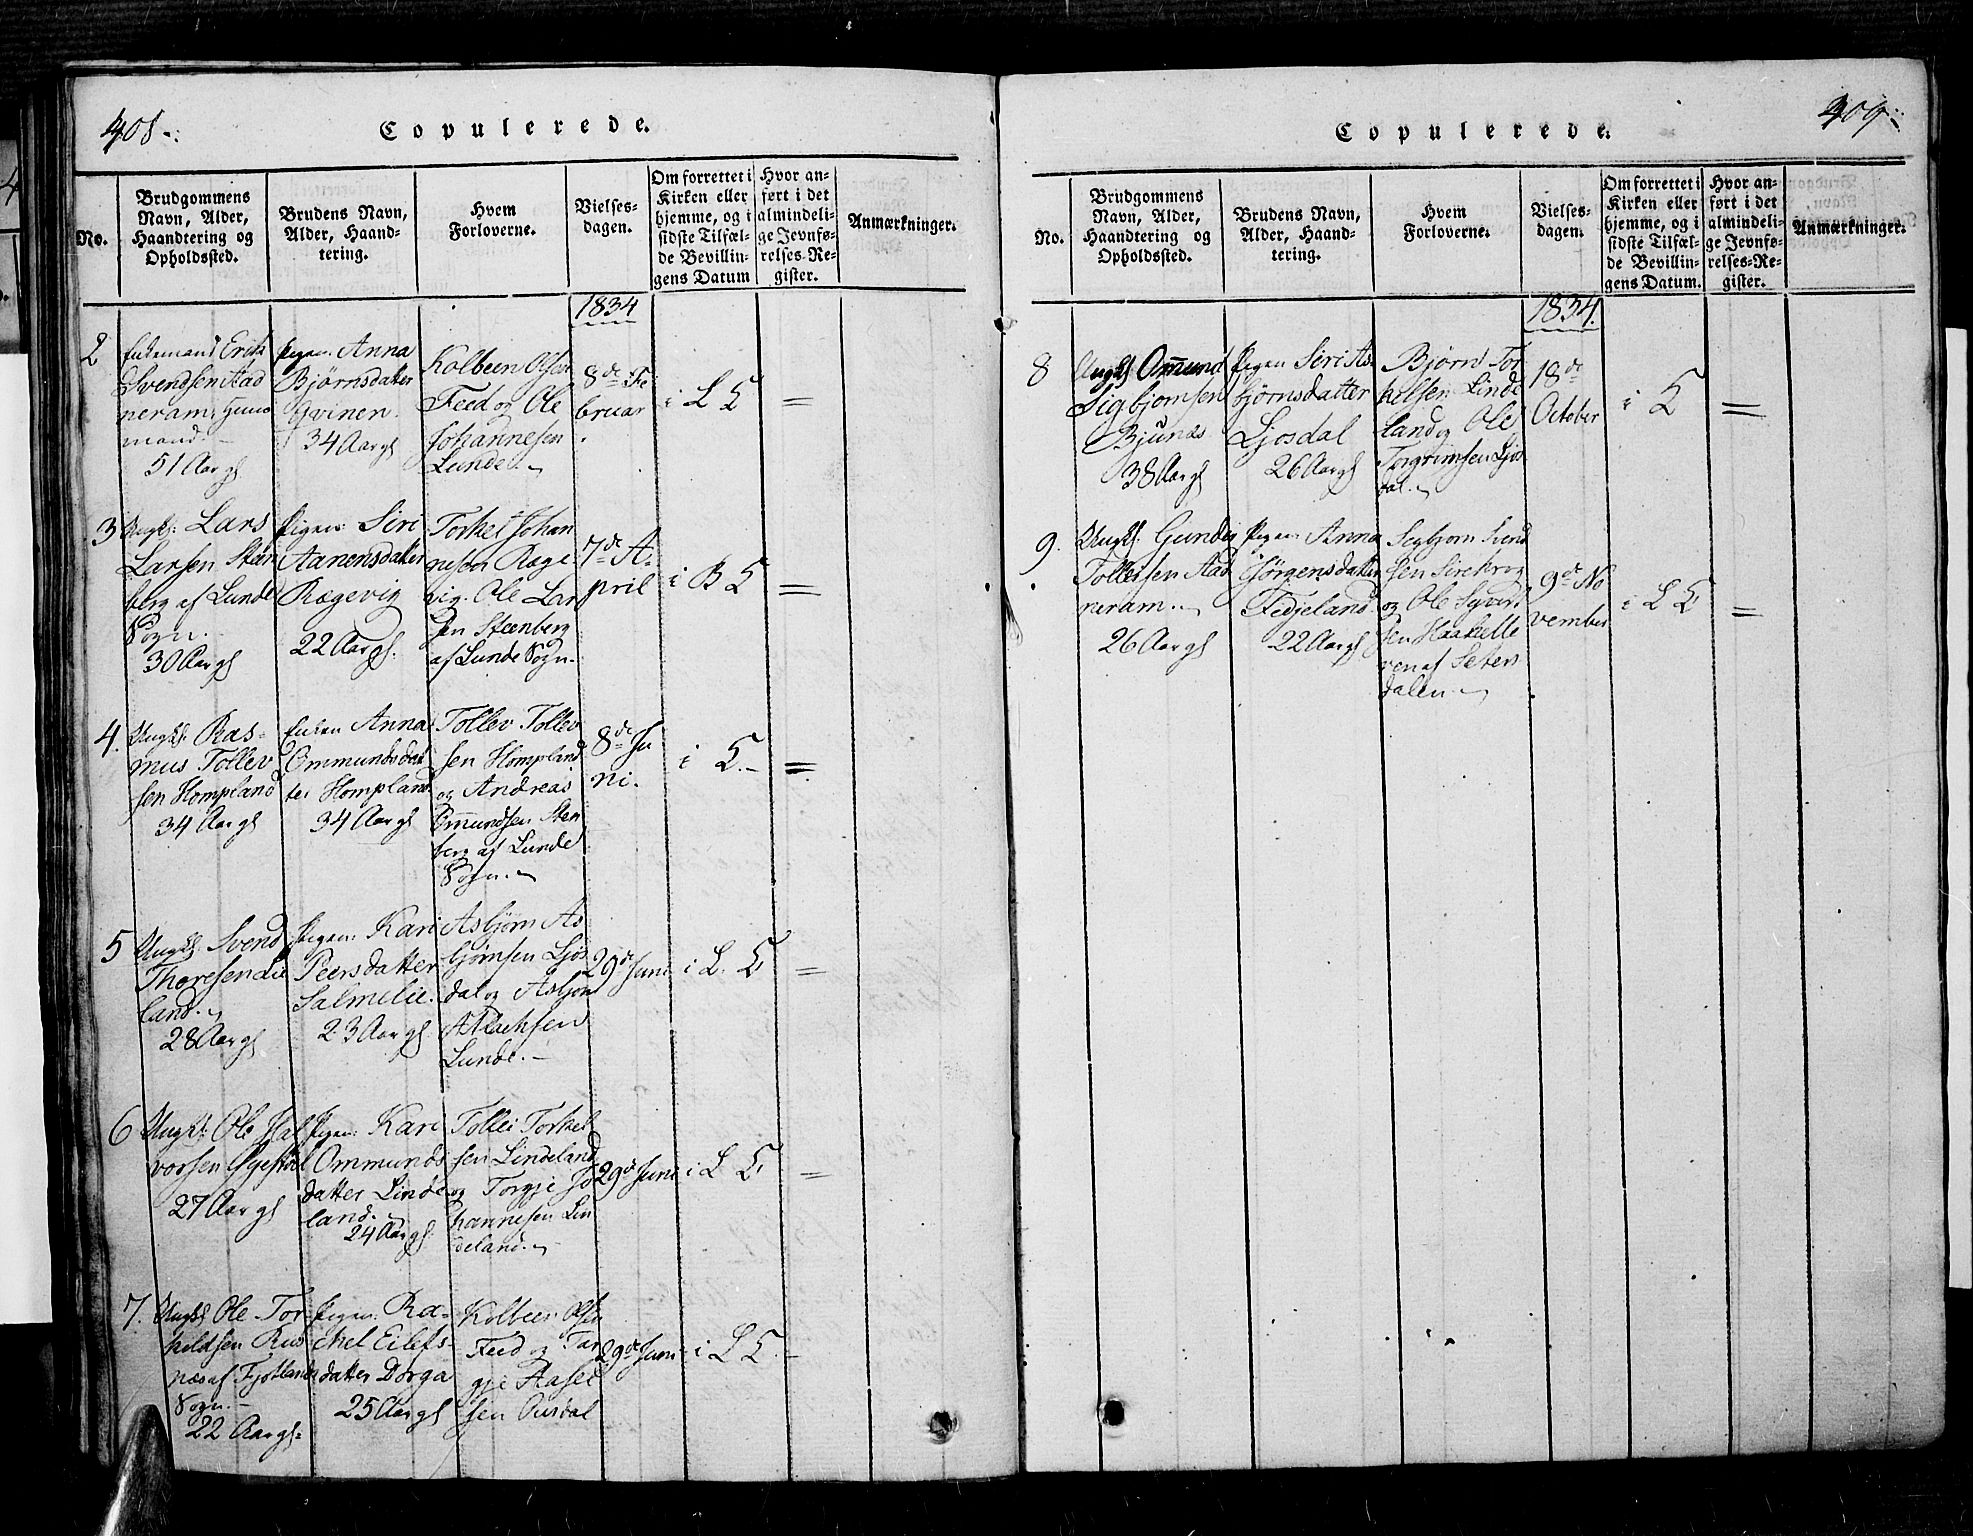 408.
Copulerede.
No.
Brudgommens
Navn, Alder,
Haandtering og
Opholdssted.
Brudens Navn,
Alder, Haand-
tering.
Hvem
Forloverne.
Vielses-
dagen.
Om forrettet i
Kirken eller
hjemme, og i
sidste Tilfæl-
de Bevillin-
gens Datum
Hvor an-
ført i det
almindeli-
ge Jevnfø-
relses-Re-
gister.
Anmærkninger.
1834
2
Enkemand Erik
Svendsen Aad
neram, Huus
mand.
51 Aar gl
Pigen Anna
Bjørnsdatter
Gvinen.
34 Aar gl
Kolbeen Olsen
Feed og Ole
Johannesen
Lunde.
8de Fe
bruar
i L
=
3
Ungk: Lars
Larsen Steen
berg af Lunde
Sogn.
30 Aar gl
Pigen: Siri
Aanensdatter
Rægevig
22 Aar gl.
Torkel Johan
nesen Ræge
vig. Ole Lar
sen Steenberg
af Lunde Sogn.
7de A-
pril
i B
=
4.
Ungk: Ras-
mus Tollev
sen Hompland
34 Aar gl
Enken Anna
Ommundsdat
ter Hompland
34 Aar gl
Tollev Tollev
sen Hompland
og Andreas
Omundsen Sten
berg af Lunde
Sogn.
8de Ju
ni.
i
=
5
Ungk: Svend
Thoresen Lie
land.
28 Aar gl
Pigen: Kari
Peersdatter
Salmelie.
23 Aar gl
Asbjørn As
bjørnsen Ljos
dal og Asbjørn
Lunde.
29de Juni
i L.
=
6
Ungk: Ole Hal
vorsen
27 Aar gl
Pigen: Kari
Ommunds
datter Linde
land.
24 Aar gl
Tollei Torkel
sen Lindeland
og Torgje Jo
hannesen Lin
deland.
29de Juni
i L
=
7.
Ungk: Ole Tor
kildsen Rus
næs af Fjotlands
Sogn.
22 Aar gl.
Pigen: Ra-
chel Eilefs-
datter Dorga
25 Aar gl
Kolbeen Olsen
Feed og Tar
gje Aasel
sen Ousdal
29de Juni
i L
409.
Copulerede.
No.
Brudgommens
Navn, Alder,
Haandtering og
Opholdssted.
Brudens Navn,
Alder, Haand-
tering.
Hvem
Forloverne.
Vielses-
dagen.
Om forrettet i
Kirken eller
hjemme, og i
sidste Tilfæl-
de Bevillin-
gens Datum.
Hvor an-
ført i det
almindeli-
ge Jevnfø-
relses-Re-
gister.
Anmærkninger.
1834.
8
Ungk Omund
Sigbjørnsen
Bjunes
38 Aar gl
Pigen Siri As
bjørnsdatter
Ljosdal
26 Aar gl
Bjørn Tor
kelsen Linde
land og Ole
Torgrimsen Ljos
dal.
18de
October
i
=
9.
Ungk: Gunder
Tolleifsen Aad
neram.
26 Aar gl
Pigen Anna
Jørgensdatter
Fedjeland
22 Aar gl
Sigbjørn Svend
sen Sirekrog
og Ole Syvert
sen Haahelle
ren af Seters
dalen.
9de No
vember
i L
=